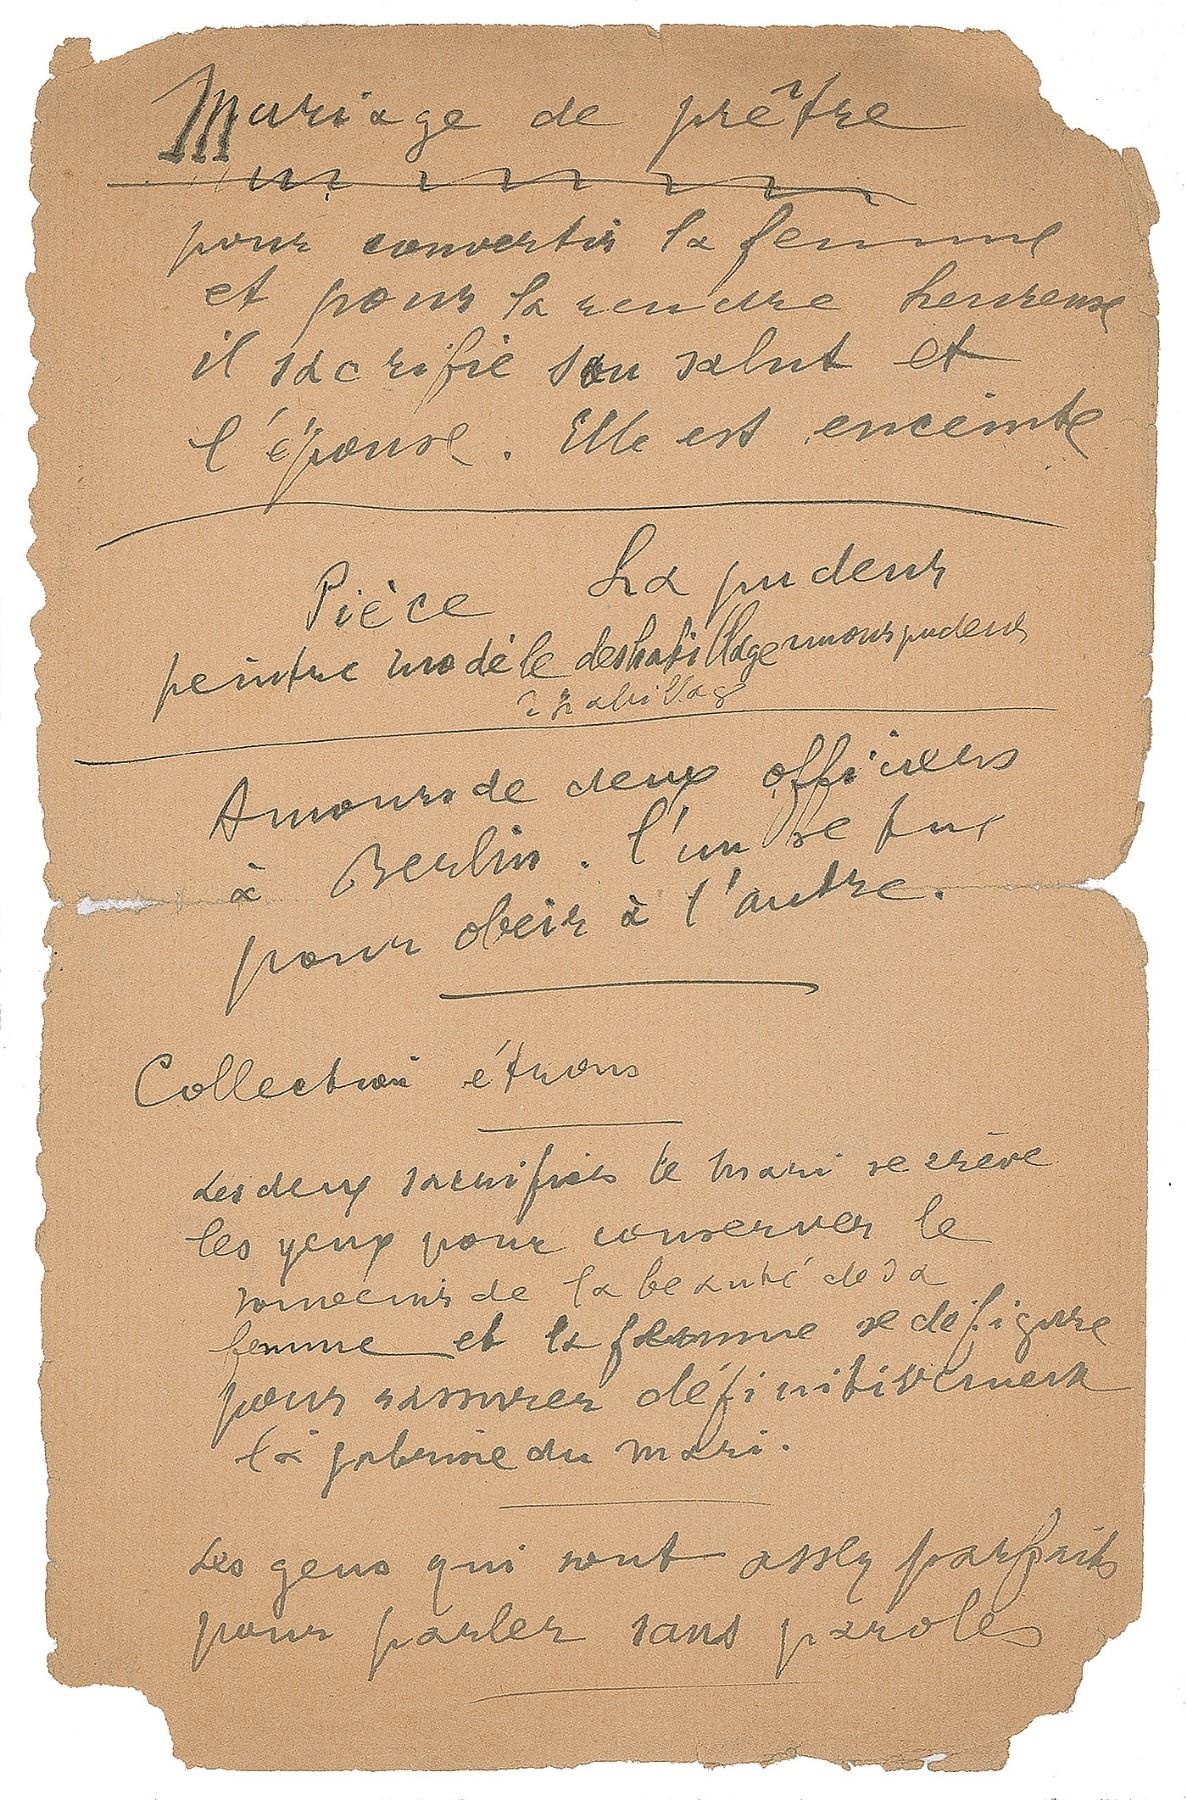 Mariage de prêtre
pour convertir la femme
et pour la rendre heureuse
il sacrifie son salut et
l'épouse. Elle est enceinte
Pièce La pudeur
peintre modèle deshabillage amour pudeur
rhabillage
Amours de deux officiers
à Berlin. l'un se tue
pour obeir à l'autre.
Collection étrons
Les deux sacrifices le mari se crève
les yeux pour conserver le
souvenir de la beauté de sa
femme et la femme se defigure
pour rassurer définitivement
la jalousie du mari.
Les gens qui sont assez parfaits
pour parler sans paroles